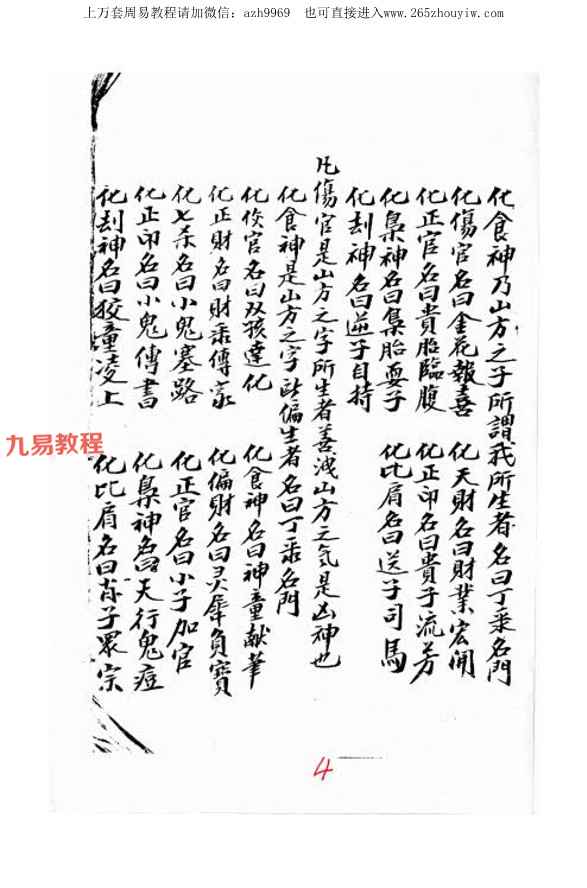 上万套周易教程请加微信：azh9969　也可直接进入www.265zhouyiw.com
化食神乃山方之子所謂我所生者名曰丁乘名門
化傷官名曰金花報喜　化天財名曰財業宏開
化正官名曰貴胎臨腹　化正印名曰貴子流芳
化梟神名曰梟胎耍子　化比肩名曰送子司馬
化刦神名曰逆子自持
凡傷官是山方之字所生者善洩山方之气是凶神也
化食神是山方之字此偏生者名曰丁乘名門
化傷官名曰双孩達化　化食神名曰神童献筆
化正財名曰財乘傳家　化偏財名曰灵犀負寶
化七杀名曰小鬼塞路　化正官名曰小子加官
化正印名曰小鬼傳書　化梟神名曰天行鬼痘
化刦神名曰狡童凌上　化比肩名曰子眾宗
九易教程
4